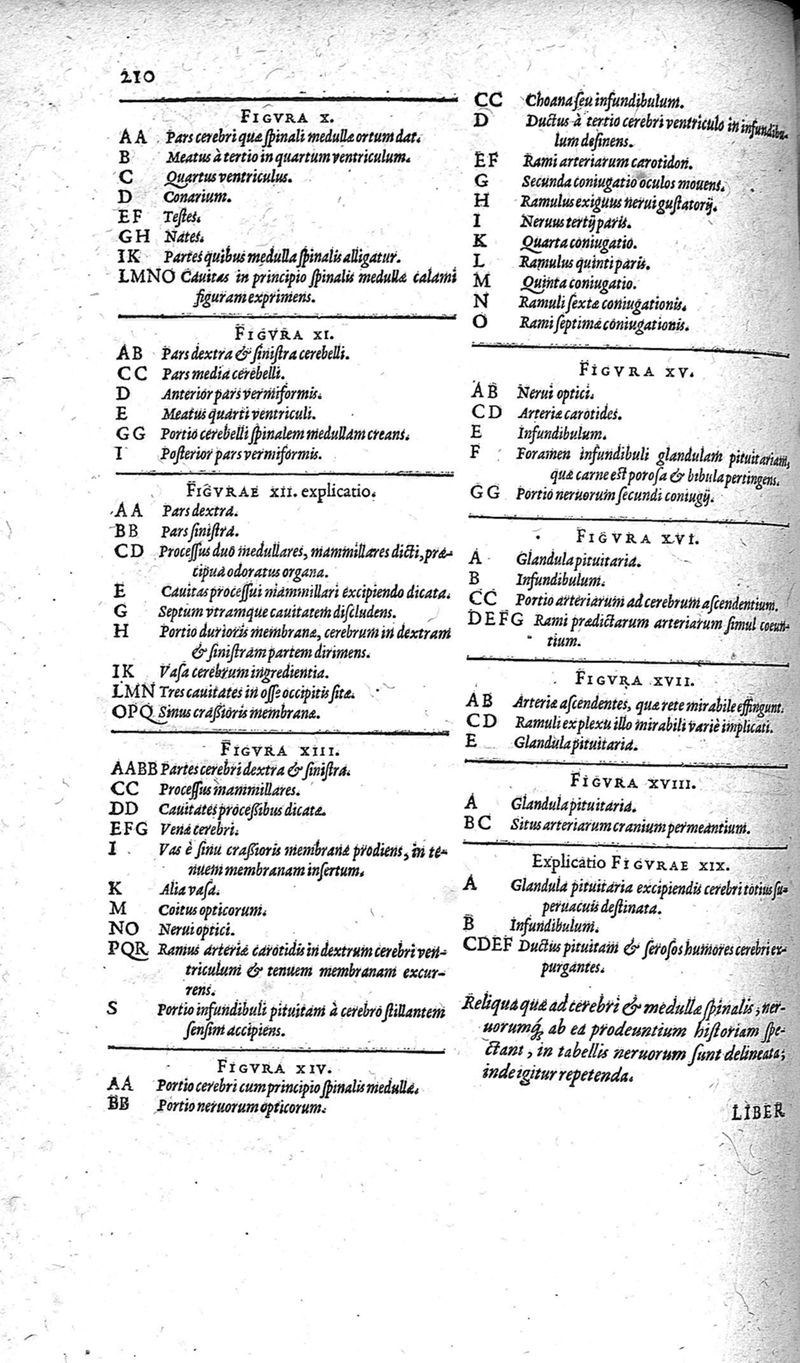 210
FIGVRA X.
AA Pars cerebri quæ ſpinali medullæ ortum dat.
B Meatus à tertio in quartum ventriculum.
C Quartus ventriculus.
D Conarium.
EF Teſtes.
GH Nates.
IK Partes quibus medulla ſpinalis alligatur.
LMNO Cauitas in principio ſpinalis medullæ calami
figuram exprimens.
FIGVRA XI.
AB Pars dextra & ſiniſtra cerebelli.
CC Pars media cerebelli.
D Anterior pars vermiformis.
E Meatus quarti ventriculi.
GG Portio cerebelli ſpinalem medullam creans.
I Poſterior pars vermiformis.
FIGVRAE XII. explicatio.
AA Pars dextra.
BB Pars ſiniſtra.
CD Proceſſus duo medullares, mammillares dicti, præ-
cipua odoratus organa.
E Cauitas proceſſui mammillari excipiendo dicata.
G Septum vtramque cauitatem diſcludens.
H Portio durioris membranæ, cerebrum in dextram
& ſiniſtram partem dirimens.
IK Vaſa cerebrum ingredientia.
LMN Tres cauitates in oſſe occipitis ſitæ.
OPQ Sinus craſſioris membranæ.
FIGVRA XIII.
AABB Partes cerebri dextra & ſiniſtra.
CC Proceſſus mammillares.
DD Cauitates proceſſibus dicatæ.
EFG Venæ cerebri.
I Vas è ſinu craſſioris membranæ prodiens, in te-
nuem membranam inſertum.
K Alia vaſa.
M Coitus opticorum.
NO Nerui optici.
PQR Ramus arteriæ carotidis in dextrum cerebri ven-
triculum & tenuem membranam excur-
rens.
S Portio infundibuli pituitam à cerebro ſtillantem
ſenſim accipiens.
FIGVRA XIV.
AA Portio cerebri cum principio ſpinalis medullæ.
BB Portio neruorum opticorum.
CC Choana ſeu infundibulum.
D Ductus à tertio cerebri ventriculo in infundibu-
lum deſinens.
EF Rami arteriarum carotidωn.
G Secunda coniugatio oculos mouens.
H Ramulus exiguus nerui guſtatorij.
I Neruus tertij paris.
K Quarta coniugatio.
L Ramulus quinti paris.
M Quinta coniugatio.
N Ramuli ſextæ coniugationis.
O Rami ſeptimæ coniugationis.
FIGVRA XV.
AB Nerui optici.
CD Arteriæ carotides.
E Infundibulum.
F Foramen infundibuli glandulam pituitariam,
quæ carne eſt poroſa & bibula pertingens.
GG Portio neruorum ſecundi coniugij.
FIGVRA XVI.
A Glandula pituitaria.
B Infundibulum.
CC Portio arteriarum ad cerebrum aſcendentium.
DEFG Rami prædictarum arteriarum ſimul coeun-
tium.
FIGVRA XVII.
AB Arteriæ aſcendentes, quæ rete mirabile effingunt.
CD Ramuli ex plexu illo mirabili variè implicati.
E Glandula pituitaria.
FIGVRA XVIII.
A Glandula pituitaria.
BC Situs arteriarum cranium permeantium.
Explicatio FIGVRAE XIX.
A Glandula pituitaria excipiendis cerebri totius ſu-
peruacuis deſtinata.
B Infundibulum.
CDEF Ductus pituitam & ſeroſos humores cerebri ex-
purgantes.
Reliqua quæ ad cerebri & medullæ ſpinalis, ner-
uorumq́, ab ea prodeuntium hiſtoriam ſpe-
ctant, in tabellis neruorum ſunt delineata;
inde igitur repetenda.
LIBER